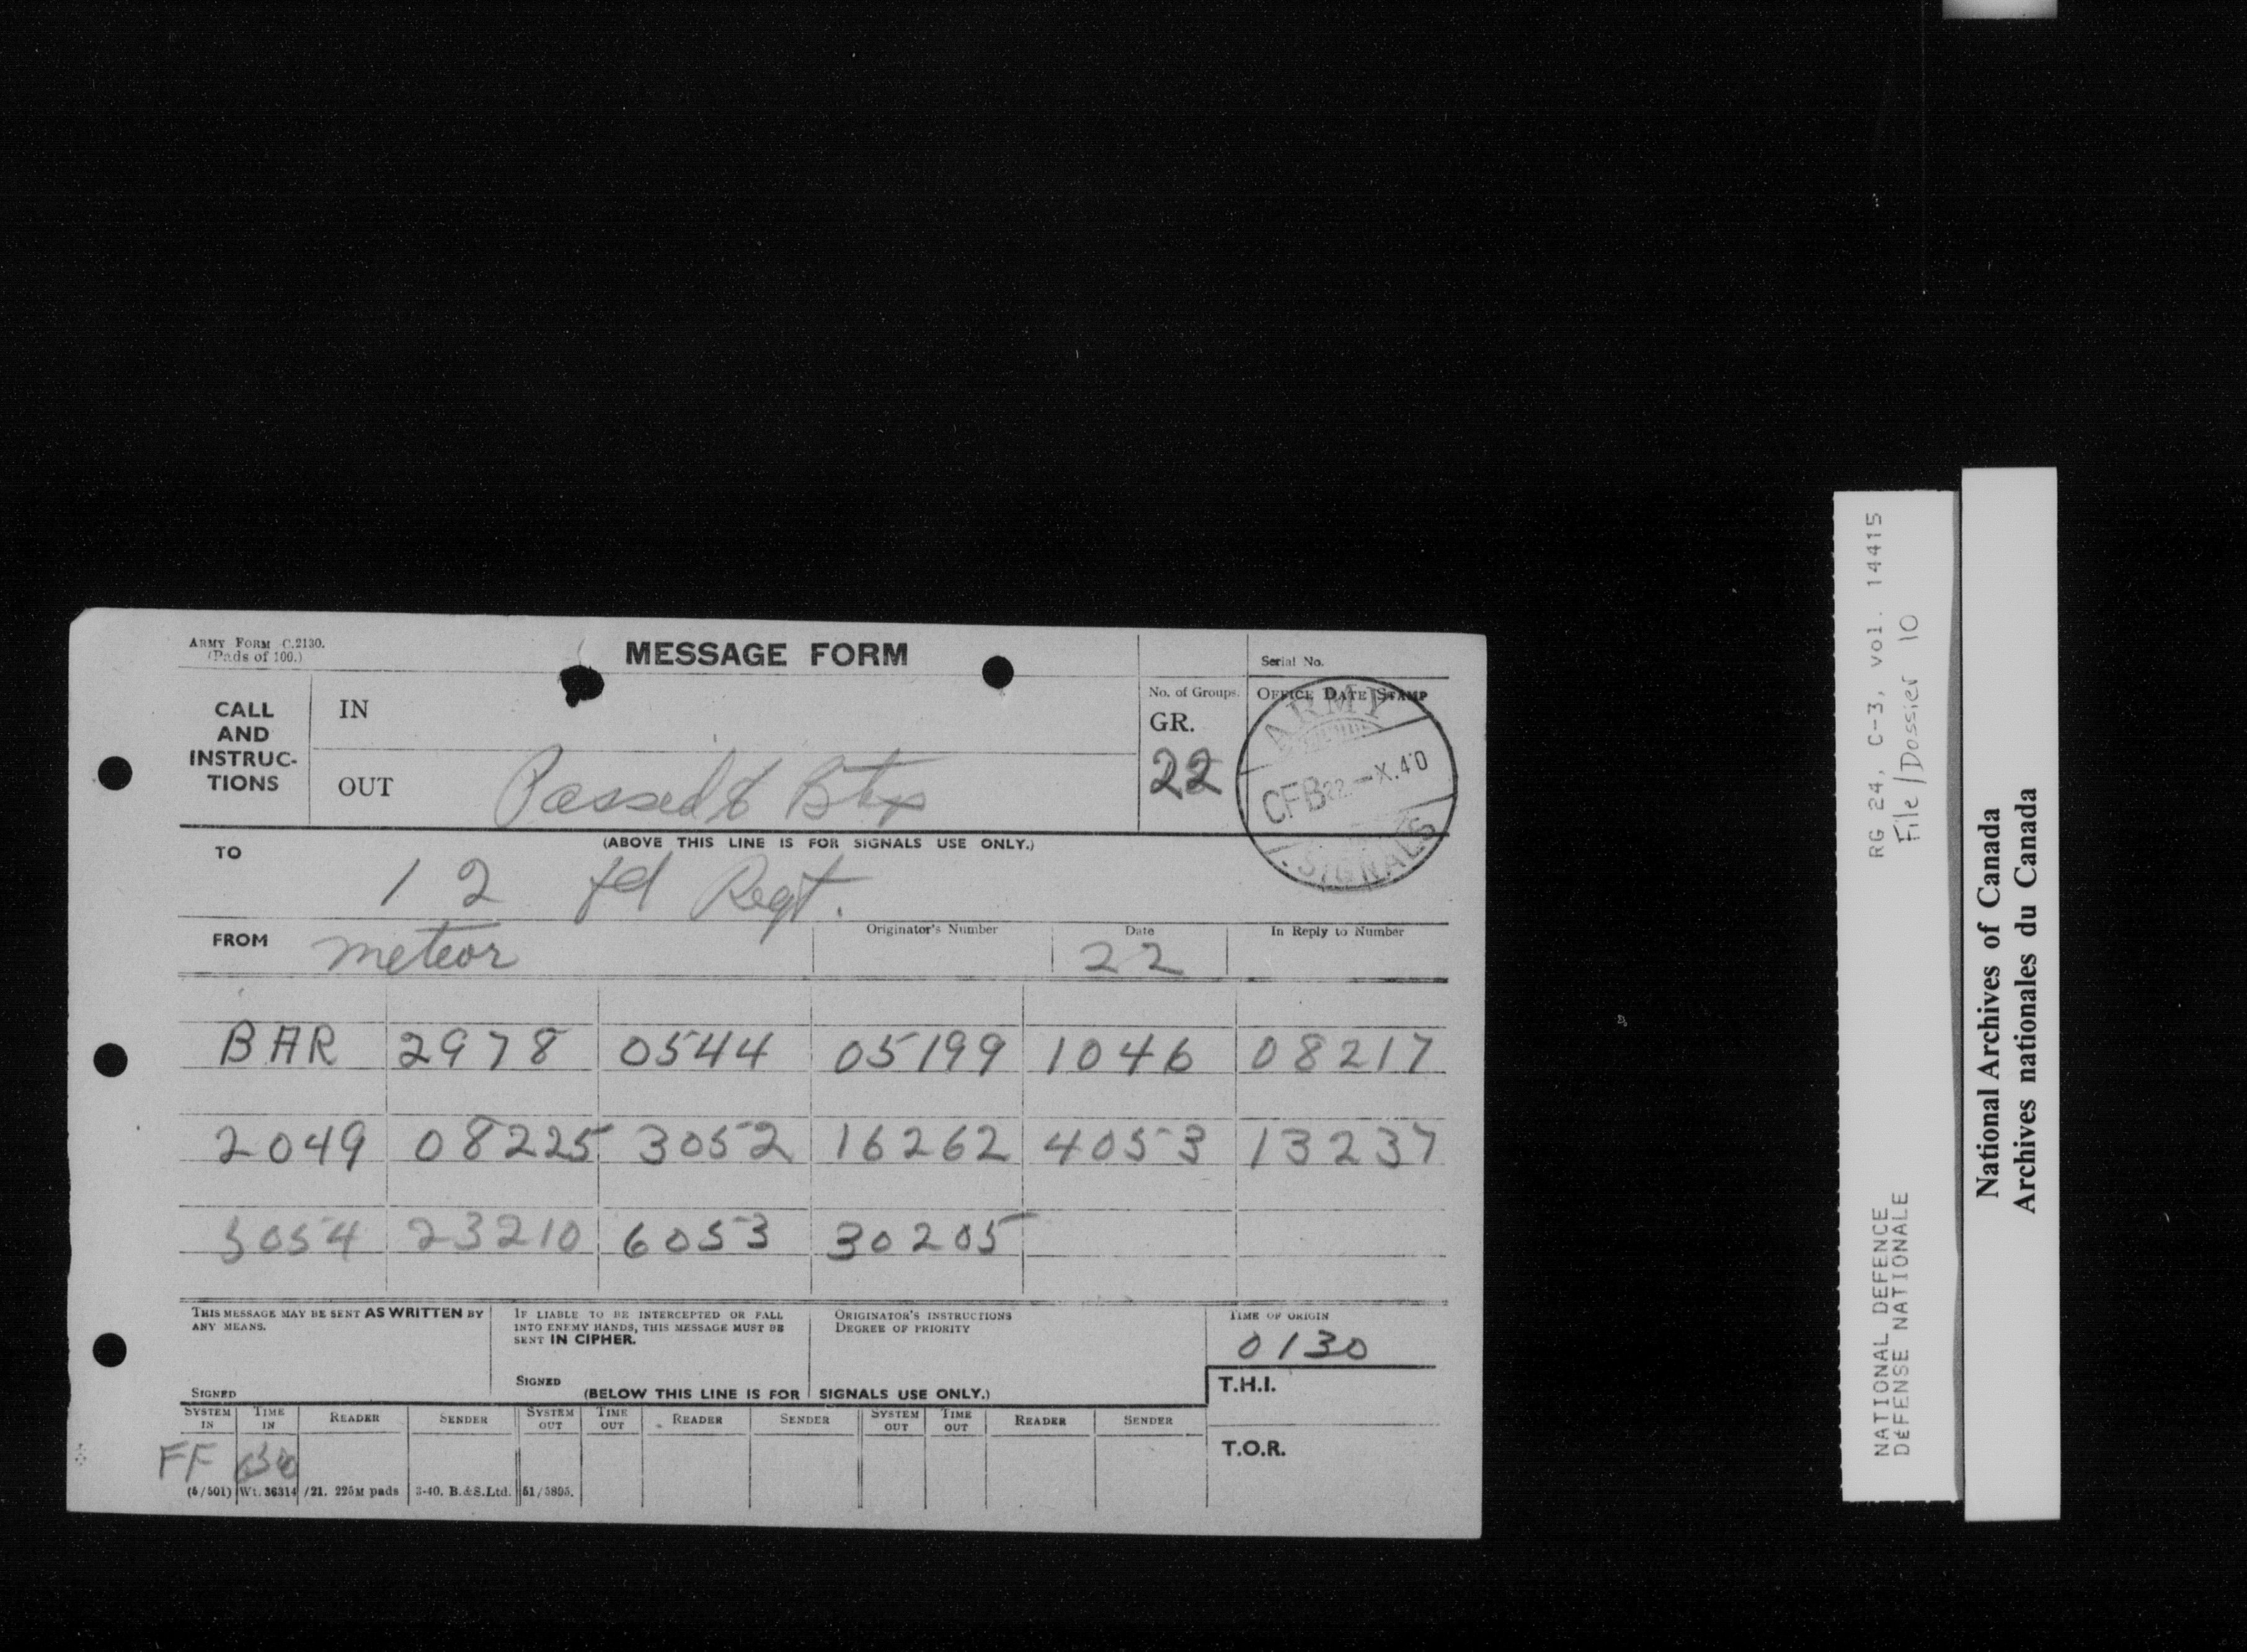 ARMY FORM C.2130.
(Pads of 100.)
MESSAGE FORM
Serial No.
CALL AND INSTRUC-TIONS
IN
No. of Groups.
GR.
22
OFFICE DATE STAMP
ARMY
CFB 22 - X.40
SIGNALS
OUT Passed to Btys
(ABOVE THIS LINE IS FOR SIGNALS USE ONLY.)
TO 12 fd Regt.
FROM meteor
Originator's Number
Date 22
In Reply to Number
BAR 2978 0544 05199 1046 08217
2049 08225 3052 16262 4053 13237
5054 23210 6053 30205
THIS MESSAGE MAY BE SENT AS WRITTEN BY
ANY MEANS.
SIGNED
IF LIABLE TO BE INTERCEPTED OR FALL
INTO ENEMY HANDS, THIS MESSAGE MUST BE
SENT IN CIPHER.
SIGNED
ORIGINATOR'S INSTRUCTIONS
DEGREE OF PRIORITY
TIME OF ORIGIN
0130
(BELOW THIS LINE IS FOR SIGNALS USE ONLY.)
T.H.I.
SYSTEM IN TIME IN READER SENDER SYSTEM OUT TIME OUT READER SENDER SYSTEM OUT TIME OUT READER SENDER
T.O.R.
FF
(5/501) Wt. 36314/21. 225M pads 3-40. B.&S.Ltd. 51/5895.
RG 24, C-3, vol. 14415
File/Dossier 10
NATIONAL DEFENCE
DÉFENSE NATIONALE
National Archives of Canada
Archives nationales du Canada